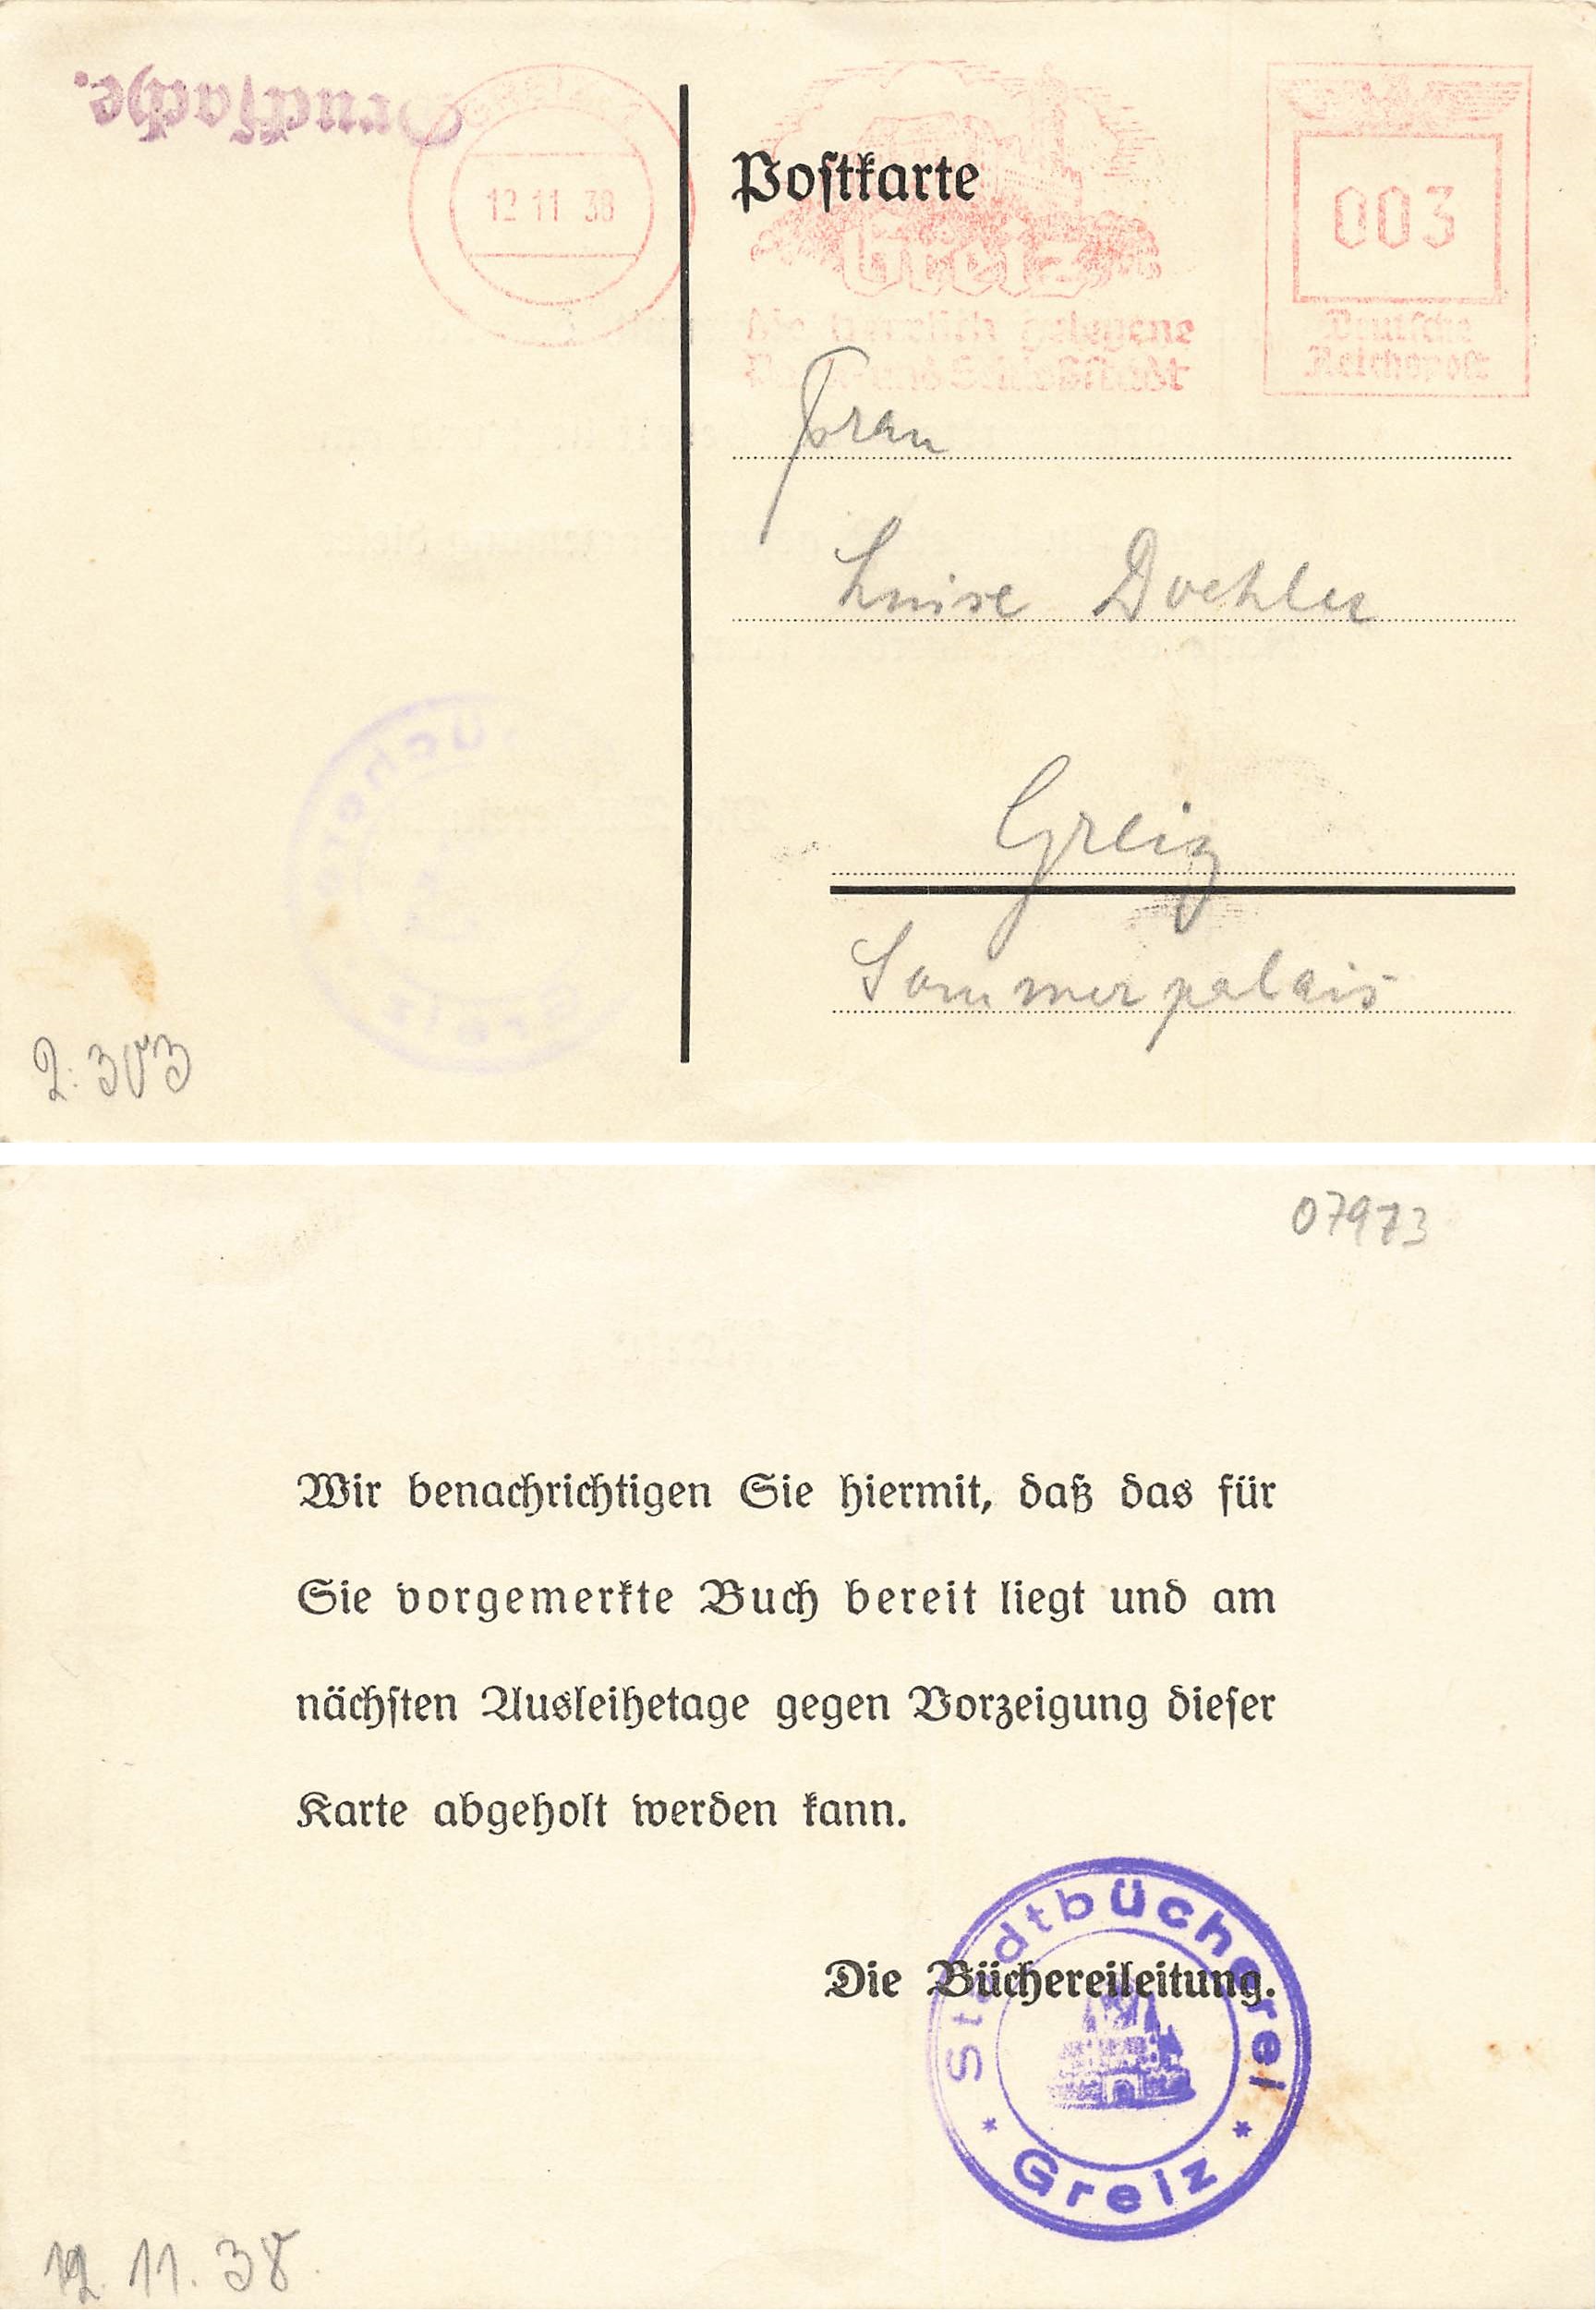 Drucksache.
12.11.38
Postkarte
Greiz
Die herrlich gelegene
Park- und Schloßstadt
003
Deutsche
Reichspost
Frau
Luise Doehler
Greiz
Sommerpalais
2:303
07973
Wir benachrichtigen Sie hiermit, daß das für
Sie vorgemerkte Buch bereit liegt und am
nächsten Ausleihetage gegen Vorzeigung dieser
Karte abgeholt werden kann.
Die Büchereileitung.
Stadtbücherei
* Greiz *
12. 11. 38.